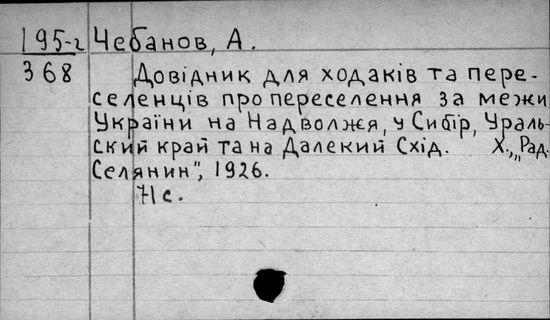 195-г Чебанов, А.
368 Довідник для ходаків та пере-
селенців про переселення за межи
України на Надволжя, у Сибір, Ураль-
ский край та на Далекий Схід. Х., „Рад.
Селянин", 1926.
71 с.